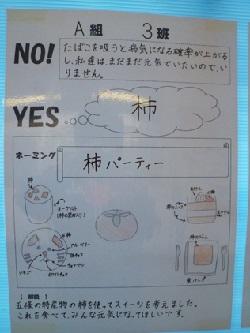 A組 3班
NO!
たばこを吸うと病気になる確率が上がる
し、私達は、まだまだ元気でいたいので、い
りません。
YES
柿
ネーミング
柿パーティー
柿
ヨーグルト
柿
説明
五條の特産物の柿を使ってスイーツを考えました。
これを食べて、みんな元気になってほしいです。